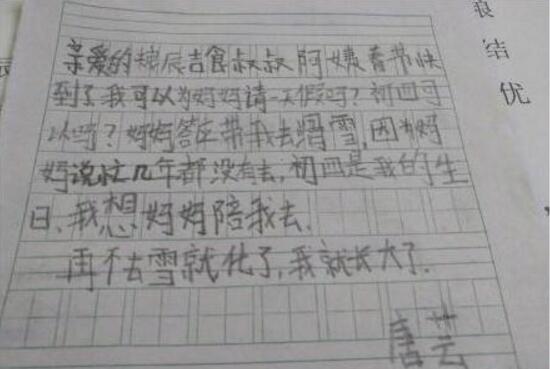 亲爱的粮辰吉食叔叔阿姨春节快
到了我可以为妈妈请一天假吗?初四可
以吗?妈妈答应带我去滑雪,因为妈
妈说忙几年都没有去,初四是我的生
日,我想妈妈陪我去.
再不去雪就化了,我就长大了.
唐芸
结
优